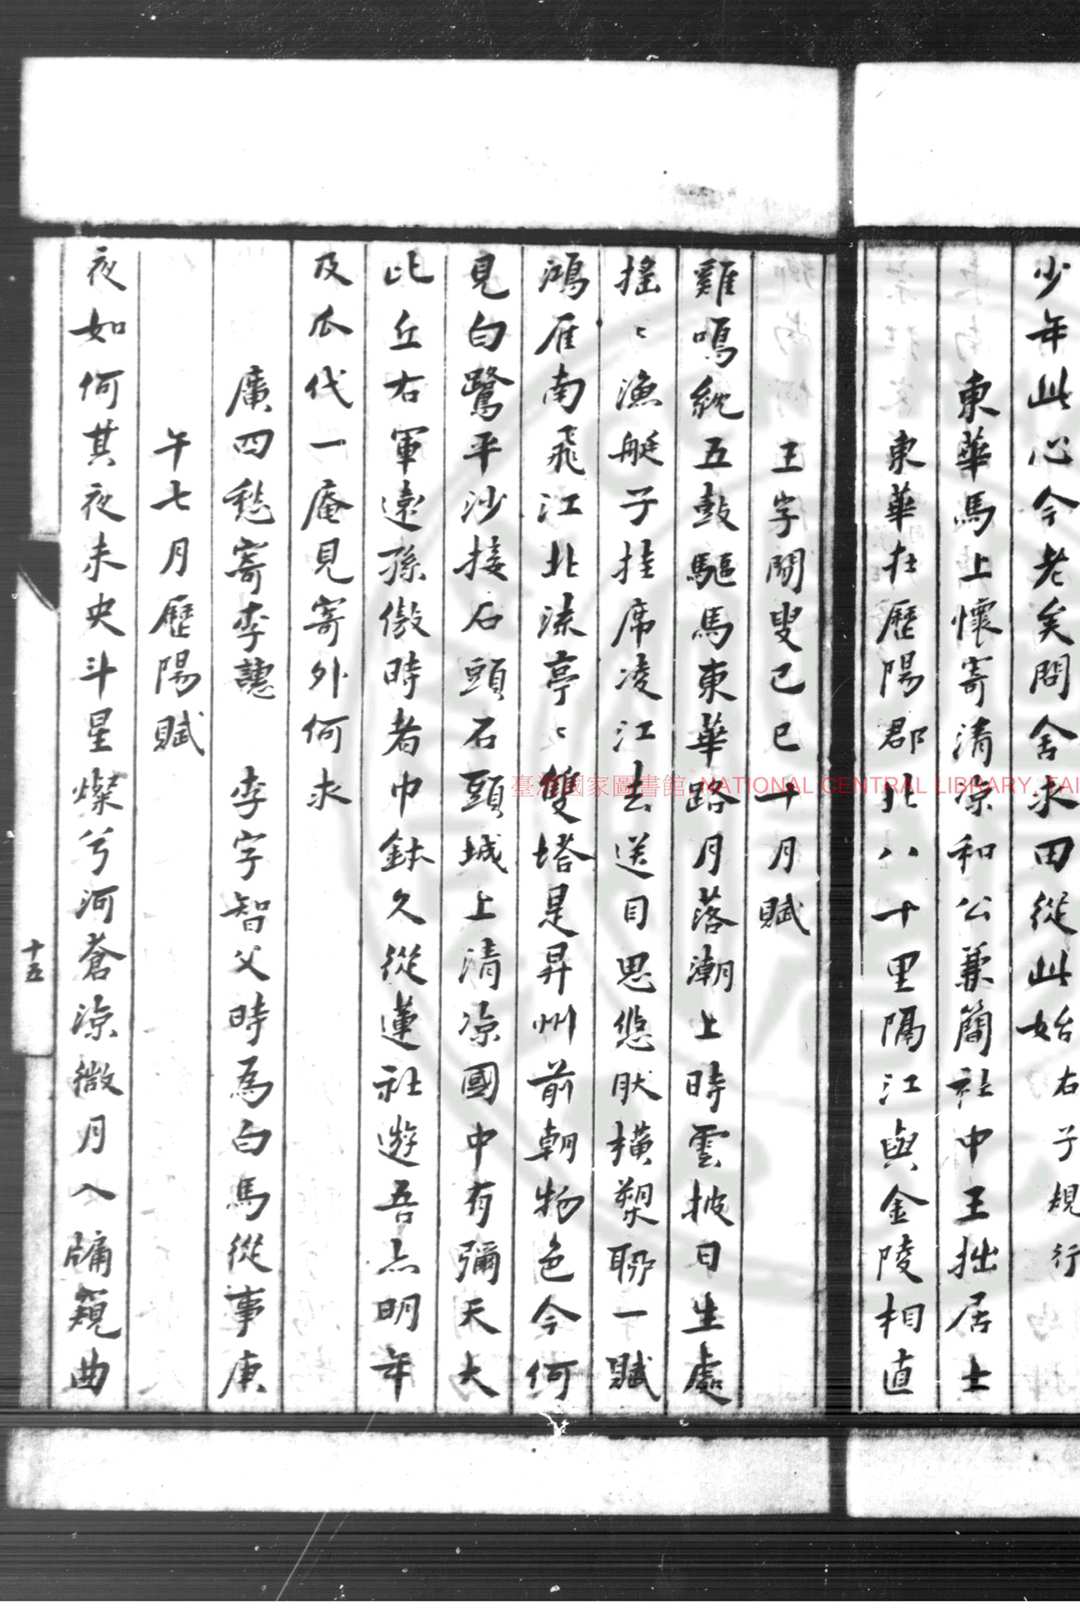 少年此心今老矣問舍求田從此始右子規行
東華馬上懷寄清凉和公兼簡社中王拙居士
東華在歷陽郡北八十里隔江與金陵相直
王字閒叟己巳十月賦
雞鳴紞五鼓驅馬東華路月落潮上時雲披日生處
搖〻漁艇子挂席凌江去送目思悠肰橫槊聊一賦
鴻雁南飛江北流亭〻雙塔是昇州前朝物色今何
見白鷺平沙接石頭石頭城上清凉國中有彌天大
比丘右軍遠孫倣時者巾鉢久從蓮社遊吾亦明年
及瓜代一庵見寄外何求
廣四愁寄李譓　李字智父時為白馬從事庚
午七月歷陽賦
夜如何其夜未央斗星燦兮河蒼涼微月入牗窺曲
十五
臺灣國家圖書館 NATIONAL CENTRAL LIBRARY, TAI